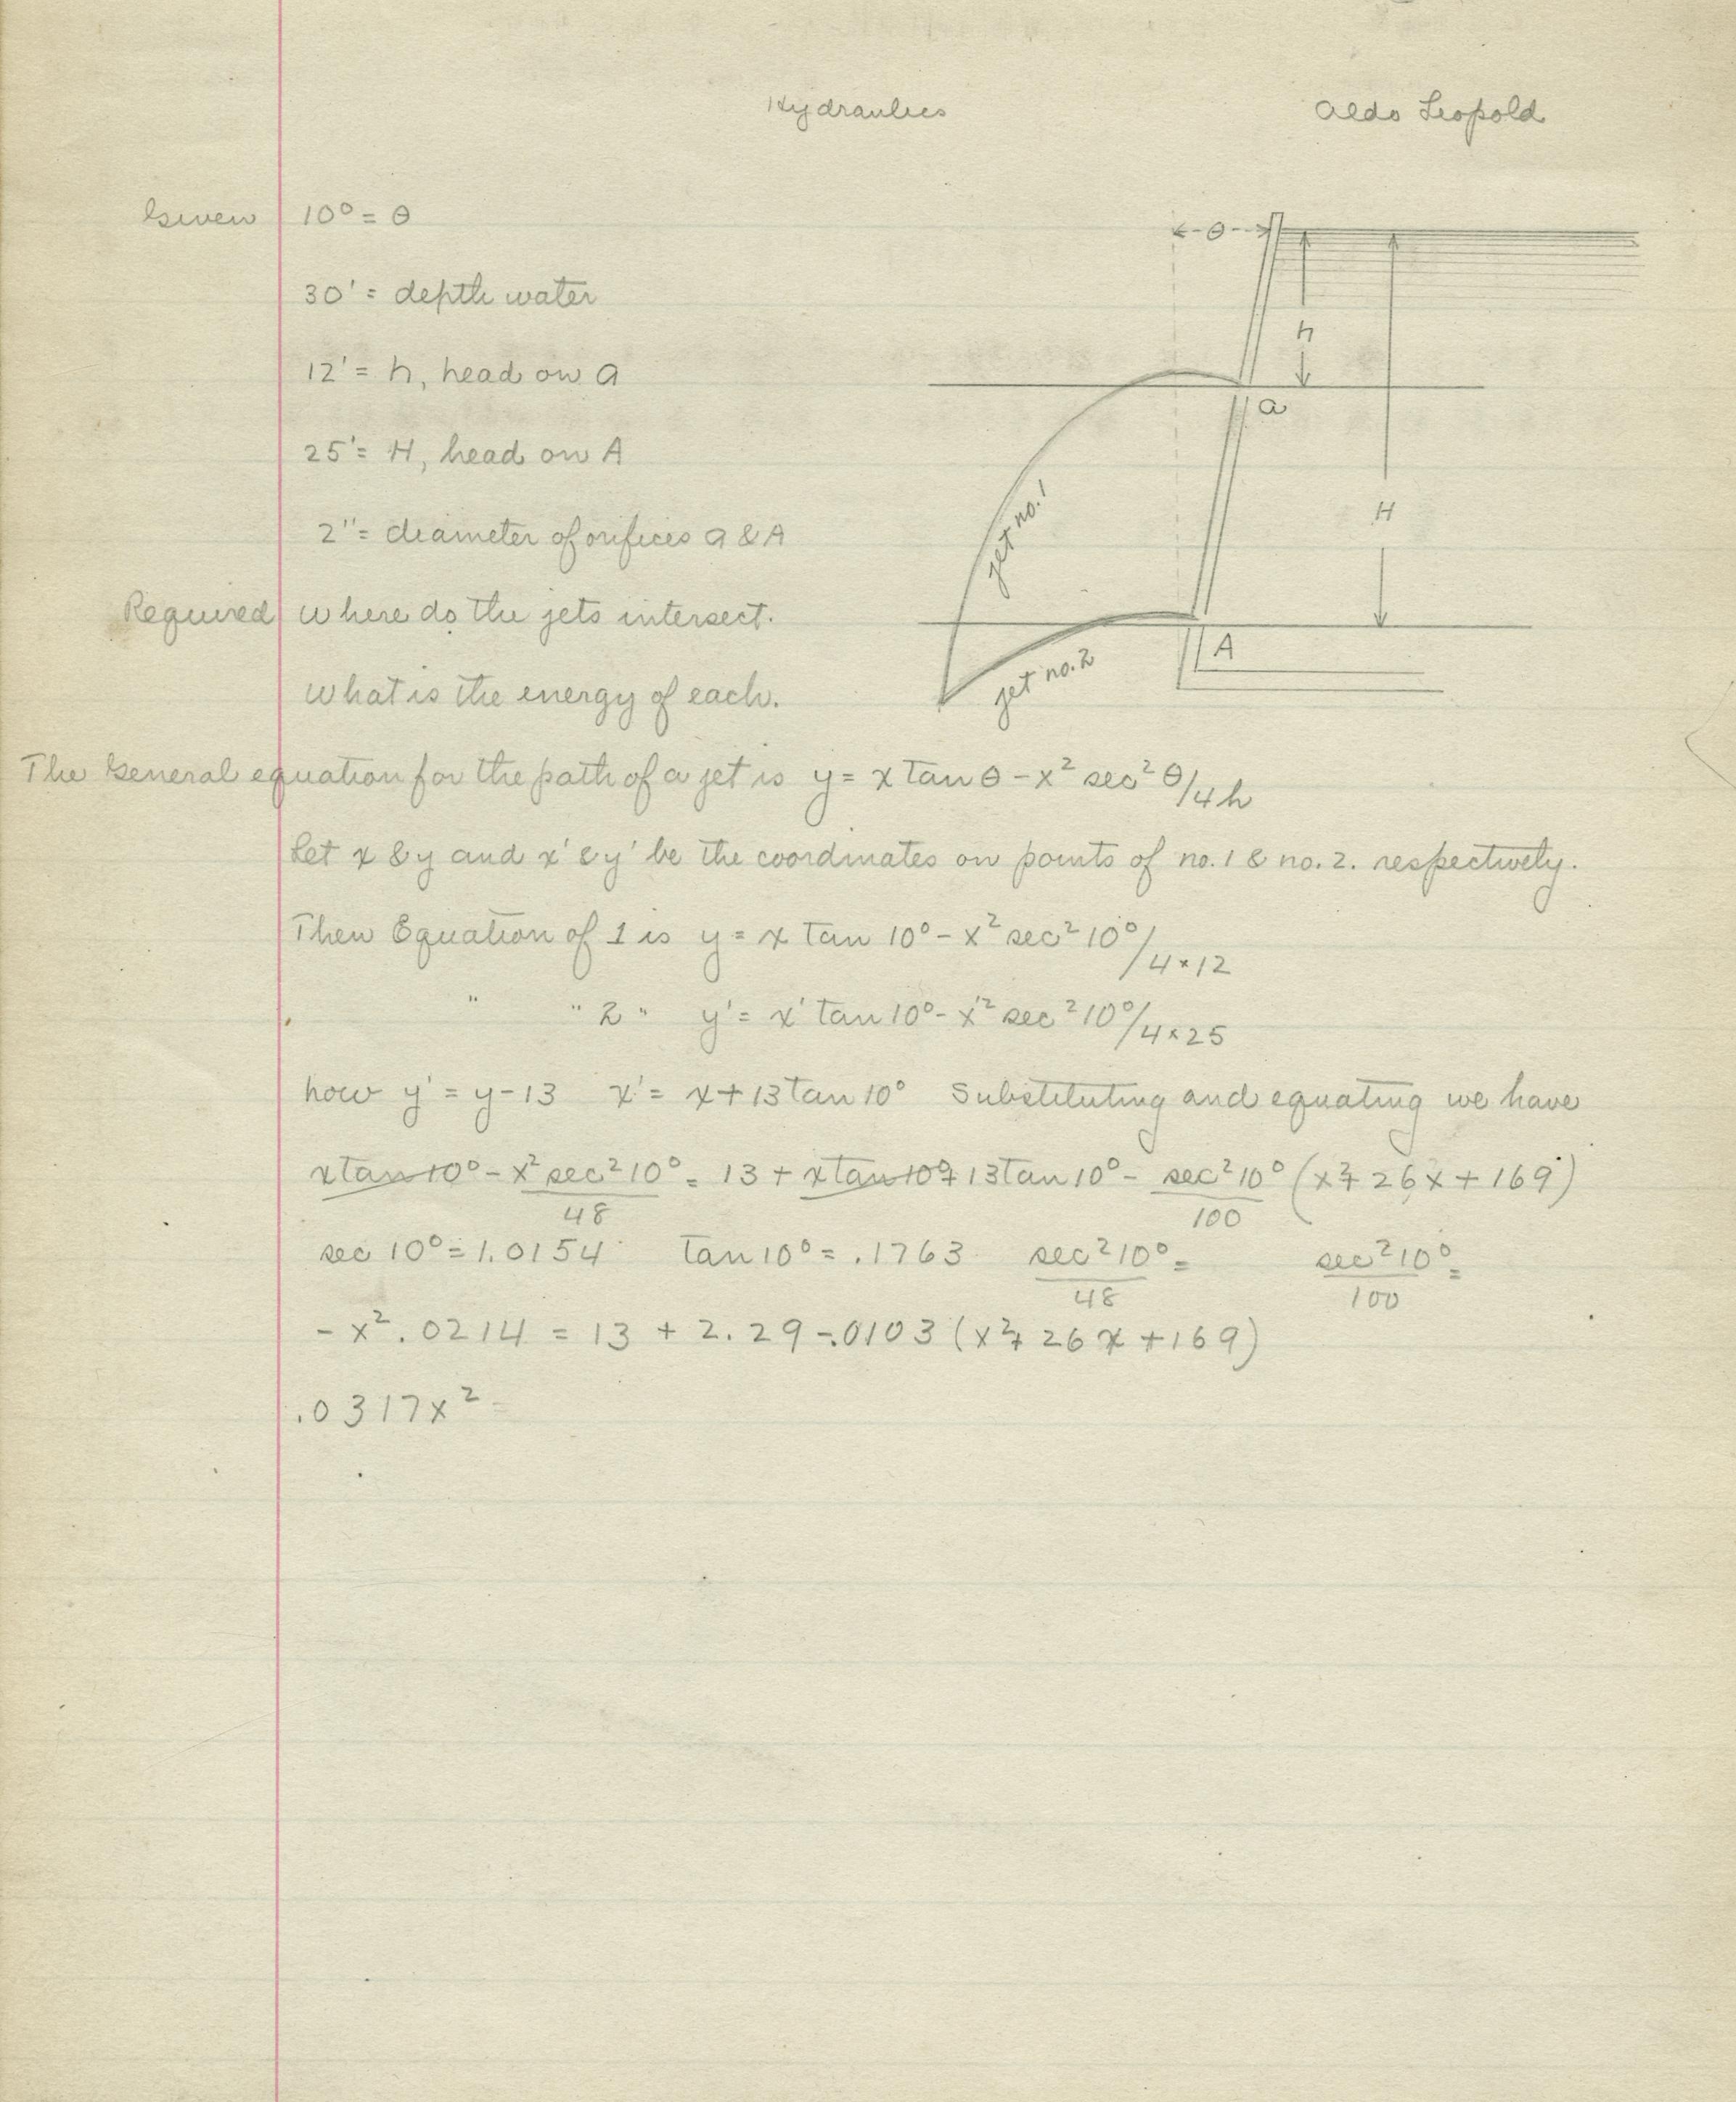 Hydraulics Aldo Leopold
Given 10° = θ
← - θ - →
30' = depth water
12' = h, head on a
h
a
25' = H, head on A
H
jet no. 1
2" = diameter of orifices a & A
Required where do the jets intersect.
A
jet no. 2
what is the energy of each.
The General equation for the path of a jet is y = x tan θ - x² sec² θ/4h
Let x & y and x' & y' be the coordinates on points of no. 1 & no. 2. respectively.
Then Equation of 1 is y = x tan 10° - x² sec² 10°/4×12
" " 2 " y' = x' tan 10° - x'² sec² 10°/4×25
now y' = y - 13 x' = x + 13 tan 10° Substituting and equating we have
x tan 10° - x² sec² 10°/48 = 13 + x tan 10° + 13 tan 10° - sec² 10°/100 (x² + 26x + 169)
sec 10° = 1.0154 tan 10° = .1763 sec² 10°/48 = sec² 10°/100 =
- x² .0214 = 13 + 2.29 - .0103 (x² + 26x + 169)
.0317x² =